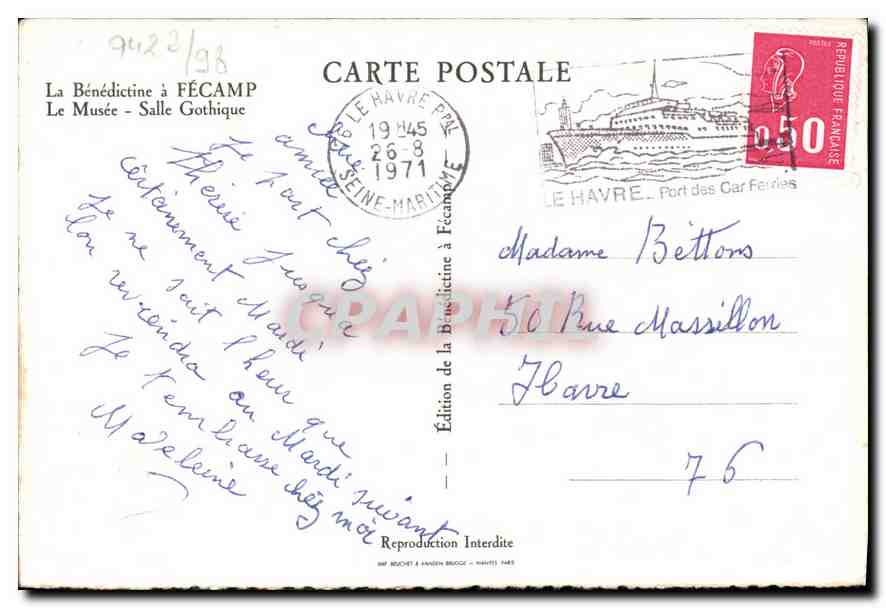 9422/98
La Bénédictine à FÉCAMP
Le Musée - Salle Gothique
CARTE POSTALE
LE HAVRE PPAL
19H45
26-8
1971
SEINE-MARITIME
LE HAVRE_ Port des Car Ferries
POSTES
REPUBLIQUE FRANÇAISE
0,50
Chère
amie
Je part chez
Thérèse Jusqu'a
certainement Mardi
Je ne sait l'heur que
lon reviendra au Mardi suivant
Je t'embrasse chez moi
Madeleine
Édition de la Bénédictine à Fécamp
Madame Béttons
50 Rue Massillon
Havre
76
CPAPHIL
Reproduction Interdite
IMP. BEUCHET & VANDEN BRUGGE - NANTES PARIS